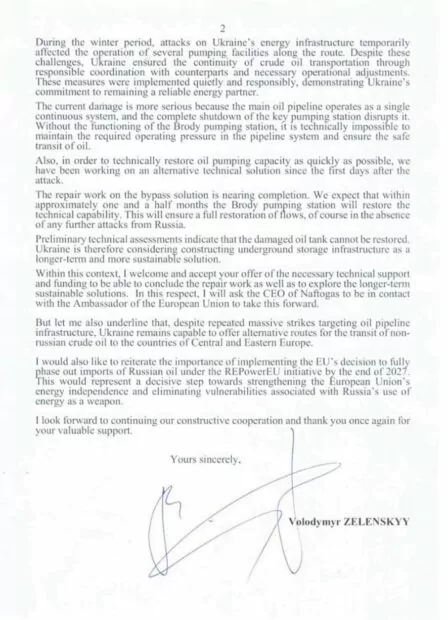 2
During the winter period, attacks on Ukraine's energy infrastructure temporarily
affected the operation of several pumping facilities along the route. Despite these
challenges, Ukraine ensured the continuity of crude oil transportation through
responsible coordination with counterparts and necessary operational adjustments.
These measures were implemented quietly and responsibly, demonstrating Ukraine's
commitment to remaining a reliable energy partner.
The current damage is more serious because the main oil pipeline operates as a single
continuous system, and the complete shutdown of the key pumping station disrupts it.
Without the functioning of the Brody pumping station, it is technically impossible to
maintain the required operating pressure in the pipeline system and ensure the safe
transit of oil.
Also, in order to technically restore oil pumping capacity as quickly as possible, we
have been working on an alternative technical solution since the first days after the
attack.
The repair work on the bypass solution is nearing completion. We expect that within
approximately one and a half months the Brody pumping station will restore the
technical capability. This will ensure a full restoration of flows, of course in the absence
of any further attacks from Russia.
Preliminary technical assessments indicate that the damaged oil tank cannot be restored.
Ukraine is therefore considering constructing underground storage infrastructure as a
longer-term and more sustainable solution.
Within this context, I welcome and accept your offer of the necessary technical support
and funding to be able to conclude the repair work as well as to explore the longer-term
sustainable solutions. In this respect, I will ask the CEO of Naftogas to be in contact
with the Ambassador of the European Union to take this forward.
But let me also underline that, despite repeated massive strikes targeting oil pipeline
infrastructure, Ukraine remains capable to offer alternative routes for the transit of non-
russian crude oil to the countries of Central and Eastern Europe.
I would also like to reiterate the importance of implementing the EU's decision to fully
phase out imports of Russian oil under the REPowerEU initiative by the end of 2027.
This would represent a decisive step towards strengthening the European Union's
energy independence and eliminating vulnerabilities associated with Russia's use of
energy as a weapon.
I look forward to continuing our constructive cooperation and thank you once again for
your valuable support.
Yours sincerely,
Volodymyr ZELENSKYY